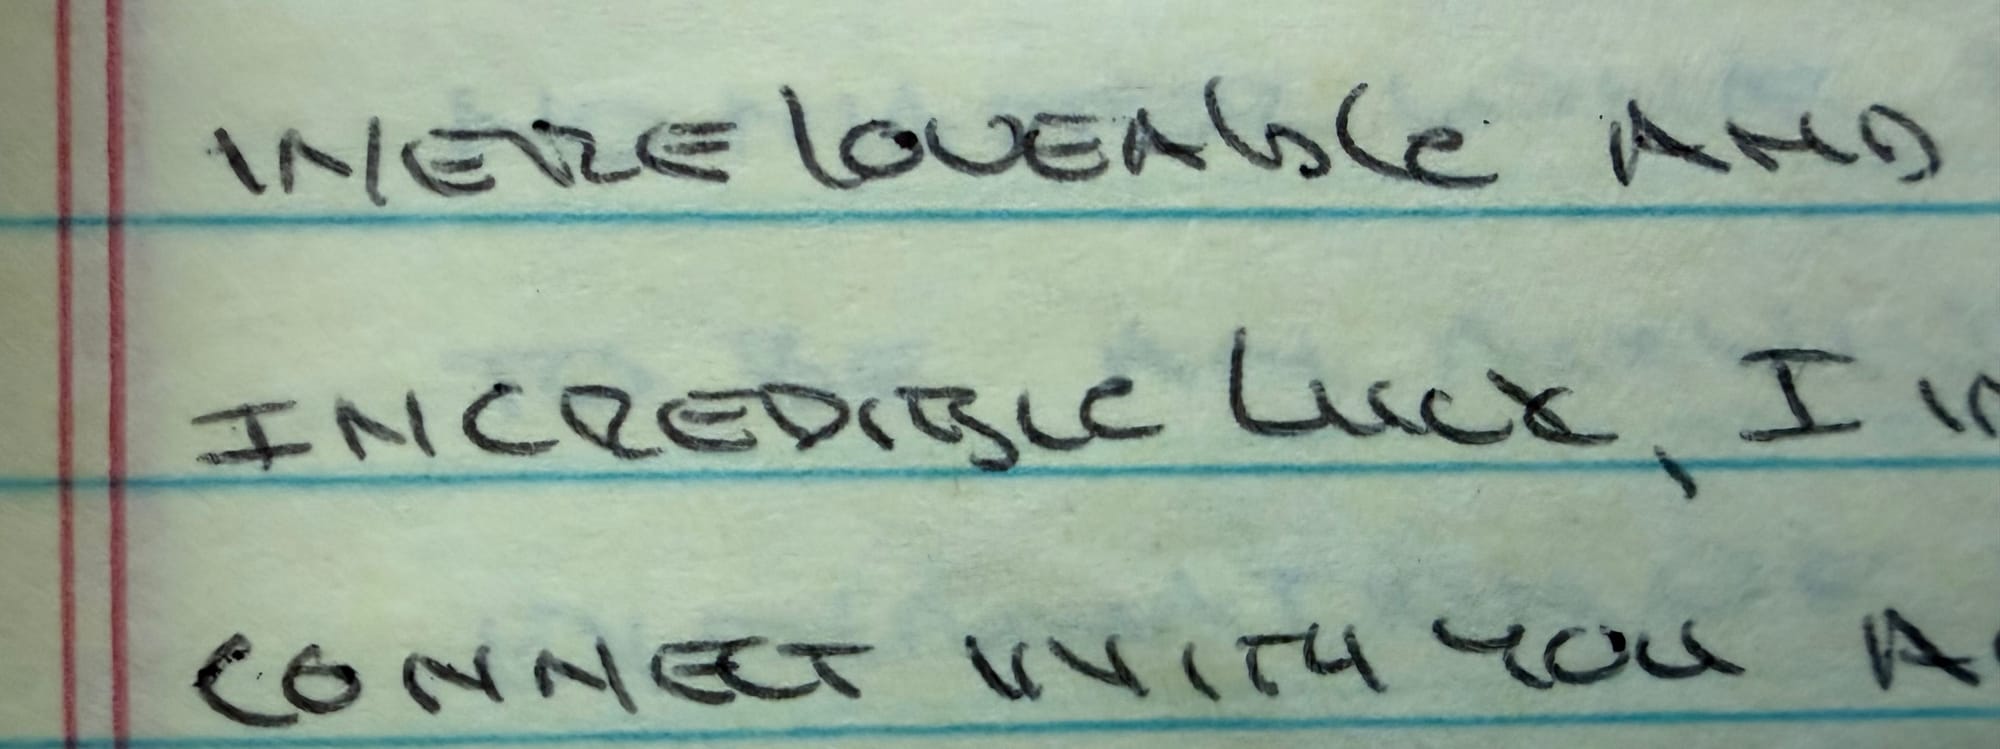 WERE loveAble AND
INCREDIBLE luck, I
CONNECT WITH YOU